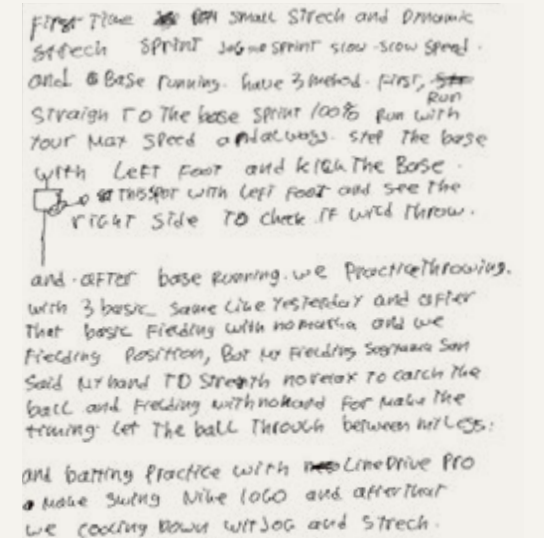 First Time small Strech and Dynamic
strech sprint Jog sprint slow-slow speed.
and Base running. have 3 method. First,
Run
straigh To The base sprint 100% Run with
Your Max speed and always step The base
with Left Foot and kick The Base.
This spot with left foot and see the
right side To check if wild Throw.
and after base Running. we Practice Throwing.
with 3 basic same Like Yesterday and after
That basic Fielding with and we
Fielding Position, But My Fielding San
Said My hand TO no relax To catch the
ball and Fielding with no hand For Make The
timing Let The ball Through between my Legs.
and batting Practice with Line Drive Pro
Make Swing Nike LOGO and after that
we cooling Down wit Jog and Strech.